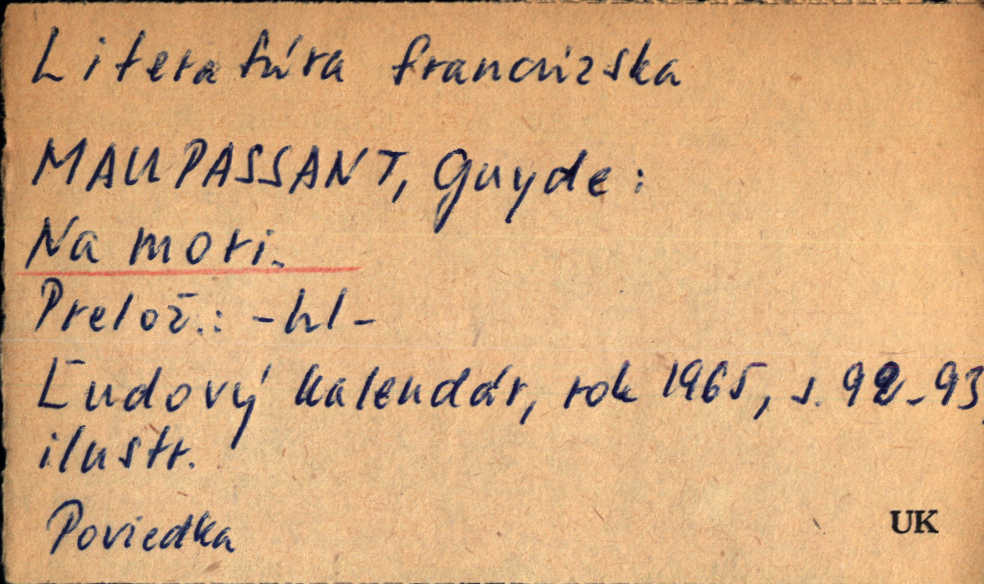 Literatúra francúzska
MAUPASSANT, Guyde:
Na mori.
Prelož.: -hl-
Ľudový kalendár, rok 1965, s. 92-93,
ilustr.
Poviedka
UK